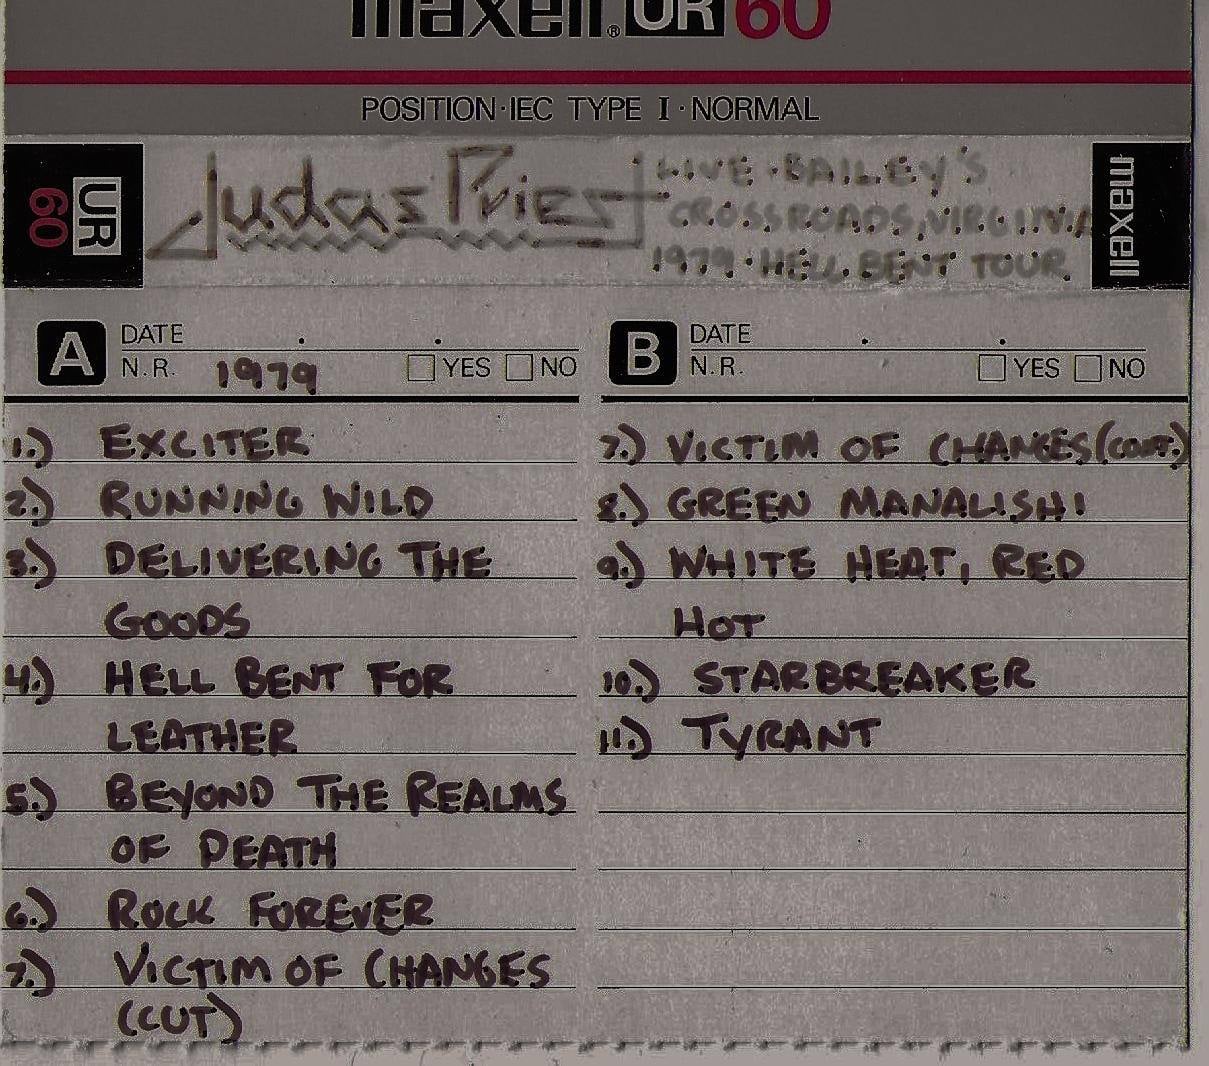 maxell® UR 60
POSITION·IEC TYPE I·NORMAL
UR 60
Judas Priest
LIVE·BAILEY'S
CROSSROADS, VIRGINIA
1979·HELL BENT TOUR
maxell
A DATE . .
N.R. 1979 YES NO
1.) EXCITER
2.) RUNNING WILD
3.) DELIVERING THE
GOODS
4.) HELL BENT FOR
LEATHER
5.) BEYOND THE REALMS
OF DEATH
6.) ROCK FOREVER
7.) VICTIM OF CHANGES
(CUT)
B DATE . .
N.R. YES NO
7.) VICTIM OF CHANGES (CONT.)
8.) GREEN MANALISHI
9.) WHITE HEAT, RED
HOT
10.) STARBREAKER
11.) TYRANT